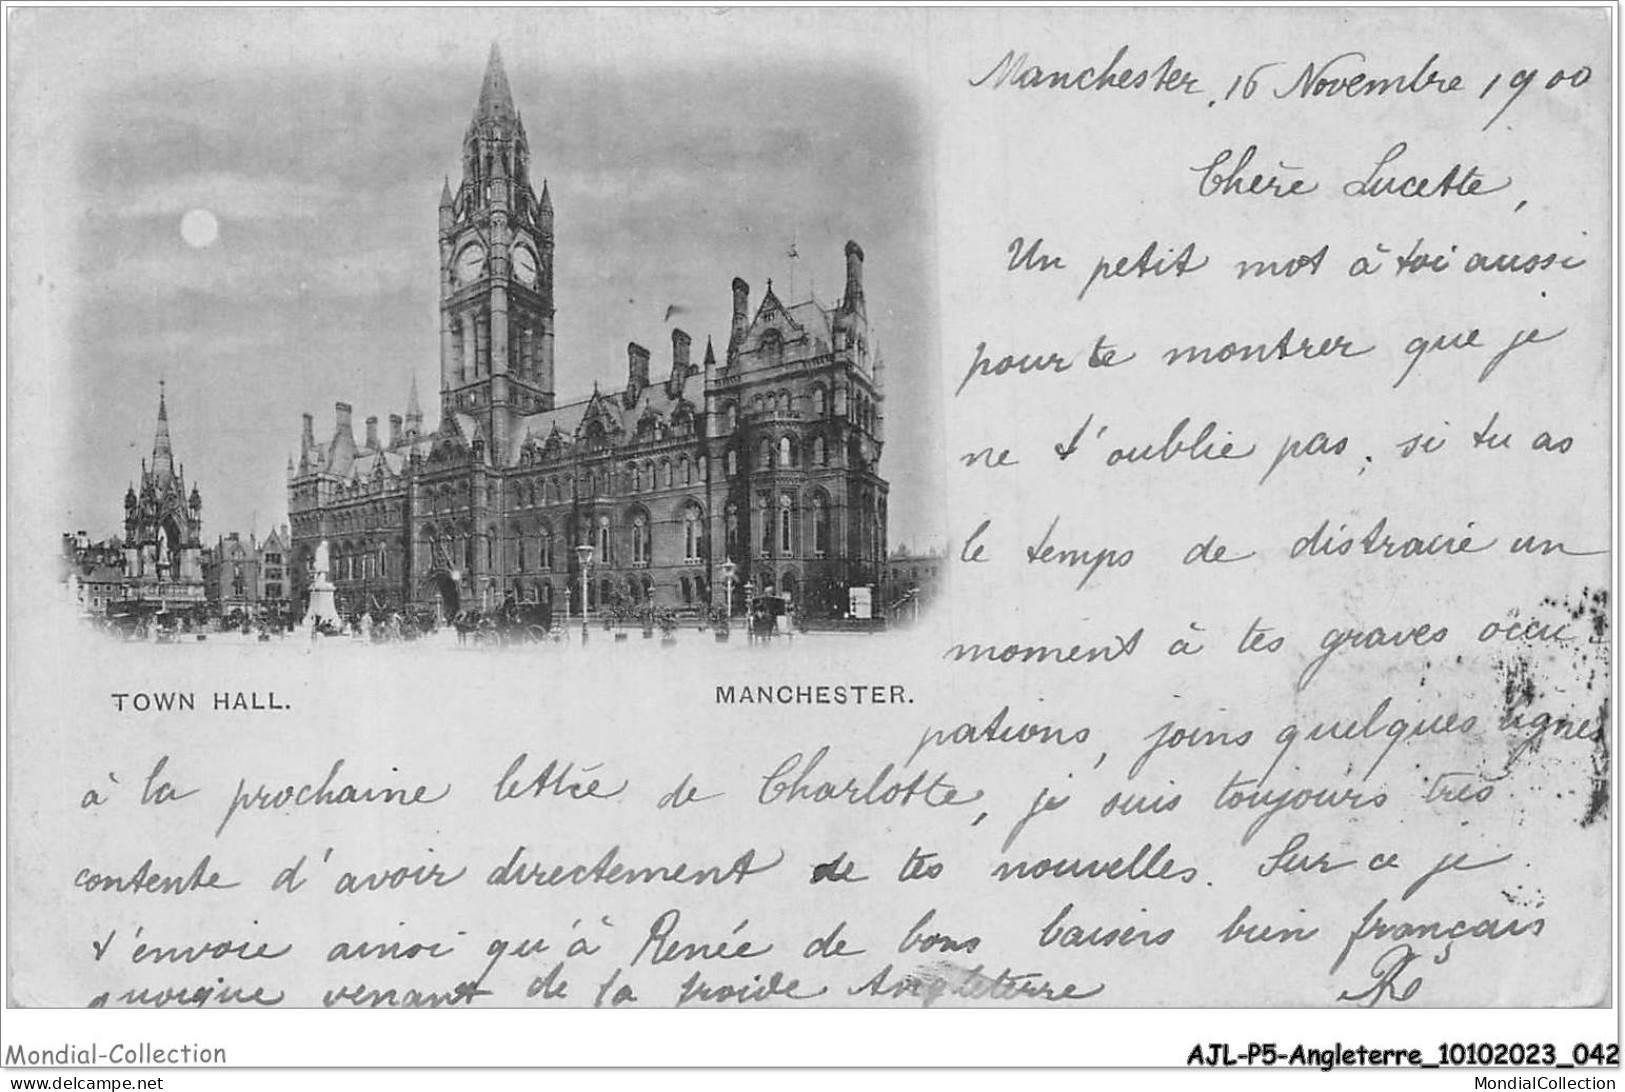 Manchester, 16 Novembre 1900
Chère Lucette,
Un petit mot à toi aussi
pour te montrer que je
ne t'oublie pas, si tu as
le temps de distraire un
moment à tes graves occu
pations, joins quelques lignes
TOWN HALL. MANCHESTER.
à la prochaine lettre de Charlotte, je suis toujours très
contente d'avoir directement de tes nouvelles. Sur ce je
t'envoie ainsi qu'à Renée de bons baisers bien français
quoique venant de la froide Angleterre
Mondial-Collection
AJL-P5-Angleterre_10102023_042
https://www.delcampe.net
MondialCollection